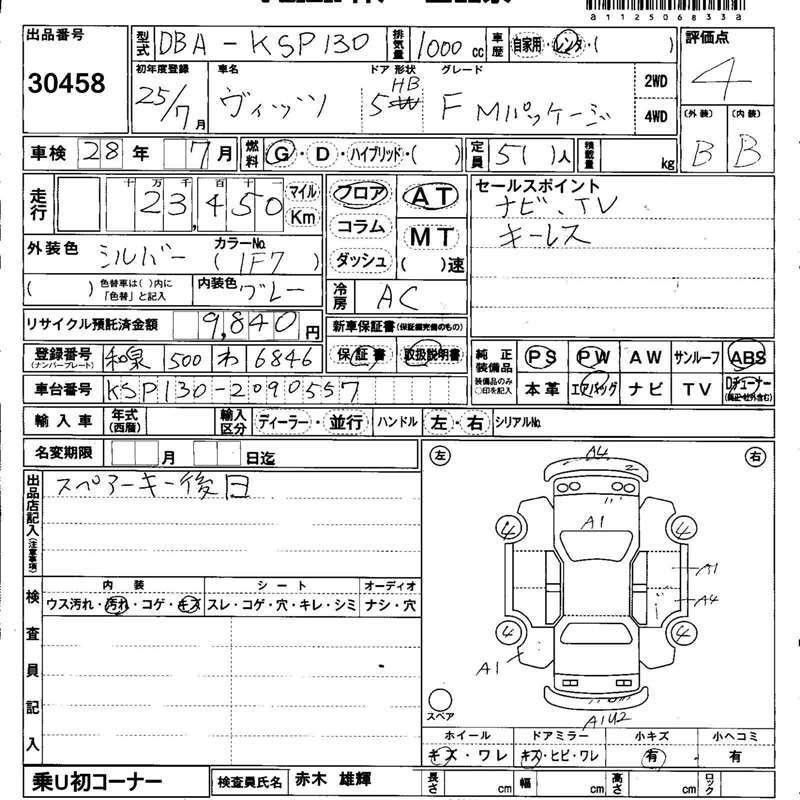 a112506833a
出品番号 30458
型式 DBA-KSP130 排気量 1000 cc 車歴 自家用・レンタ・( )
初年度登録 25/7月 車名 ヴィッツ ドア 形状 5 HB グレード F Mパッケージ 2WD 4WD
評価点 4
(外装) B (内装) B
車検 28年 7月 燃料 G・D・ハイブリッド・( ) 定員 5( )人 積載量 kg
走行 十万千百十一 23,450 マイル Km
フロア コラム ダッシュ
AT MT ( )速
セールスポイント
ナビ、TV
キーレス
外装色 シルバー カラーNo. (1F7)
( ) 色替車は( )内に「色替」と記入 内装色 グレー
冷房 AC
リサイクル預託済金額 9,840円
新車保証書(保証継続完備のもの)
保証書 取扱説明書
登録番号(ナンバープレート) 和泉 500 わ 6846
車台番号 KSP130-2090557
純正装備品 装備品のみ○印を記入 PS PW AW サンルーフ ABS
本革 エアバッグ ナビ TV Dチューナー(純正・社外含む)
輸入車 年式(西暦) 輸入区分 ディーラー・並行 ハンドル 左・右 シリアルNo.
名変期限 月 日迄
出品店記入(注意事項) スペアーキー後日
検査員記入
内装 シート オーディオ
ウス汚れ・汚れ・コゲ・キズ スレ・コゲ・穴・キレ・シミ ナシ・穴
左 右
A4
2
A1
4 4
A1
A4
4 4
A1
スペア
A1U2
ホイール ドアミラー 小キズ 小ヘコミ
キズ・ワレ キズ・ヒビ・ワレ 有 有
乗U初コーナー 検査員氏名 赤木 雄輝 長さ cm 幅 cm 高さ cm ロック